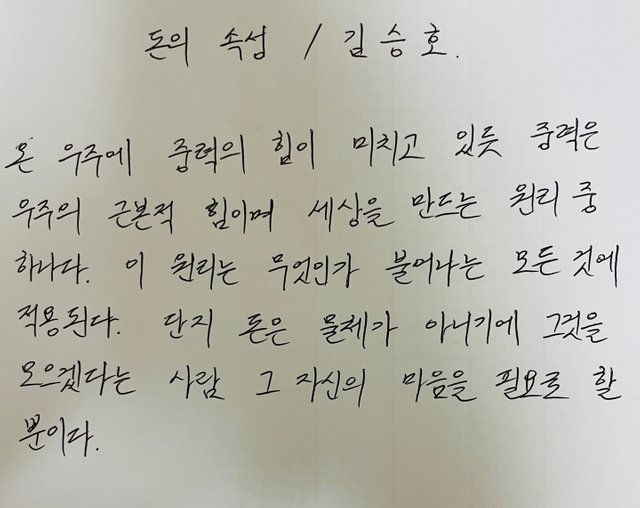 돈의 속성 / 김승호.
온 우주에 중력의 힘이 미치고 있듯 중력은
우주의 근본적 힘이며 세상을 만드는 원리 중
하나다. 이 원리는 무엇인가 불어나는 모든 것에
적용된다. 단지 돈은 물체가 아니기에 그것을
모으겠다는 사람 그 자신의 마음을 필요로 할
뿐이다.